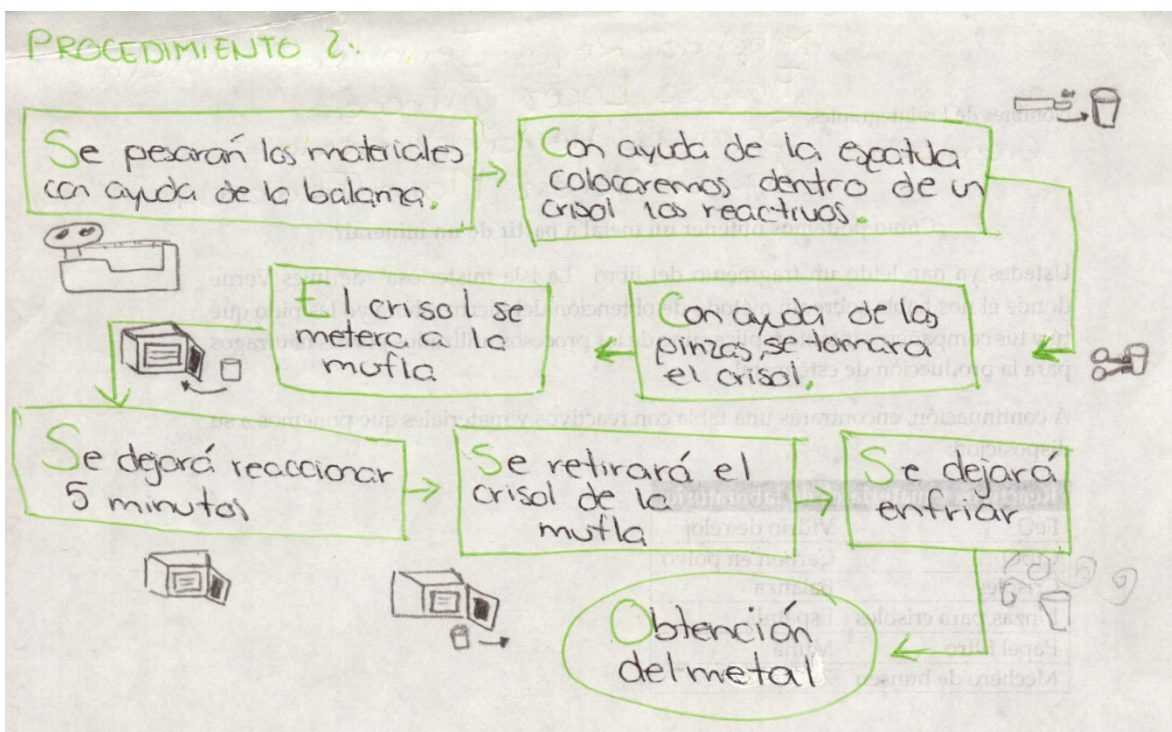 PROCEDIMIENTO 2:
Se pesarán los materiales
con ayuda de la balanza.
Con ayuda de la espatula
colocaremos dentro de un
crisol los reactivos.
Con ayuda de las
pinzas, se tomara
el crisol.
El crisol se
metera a la
mufla
Se dejará reaccionar
5 minutos
Se retirará el
crisol de la
mufla
Se dejará
enfriar
Obtención
del metal